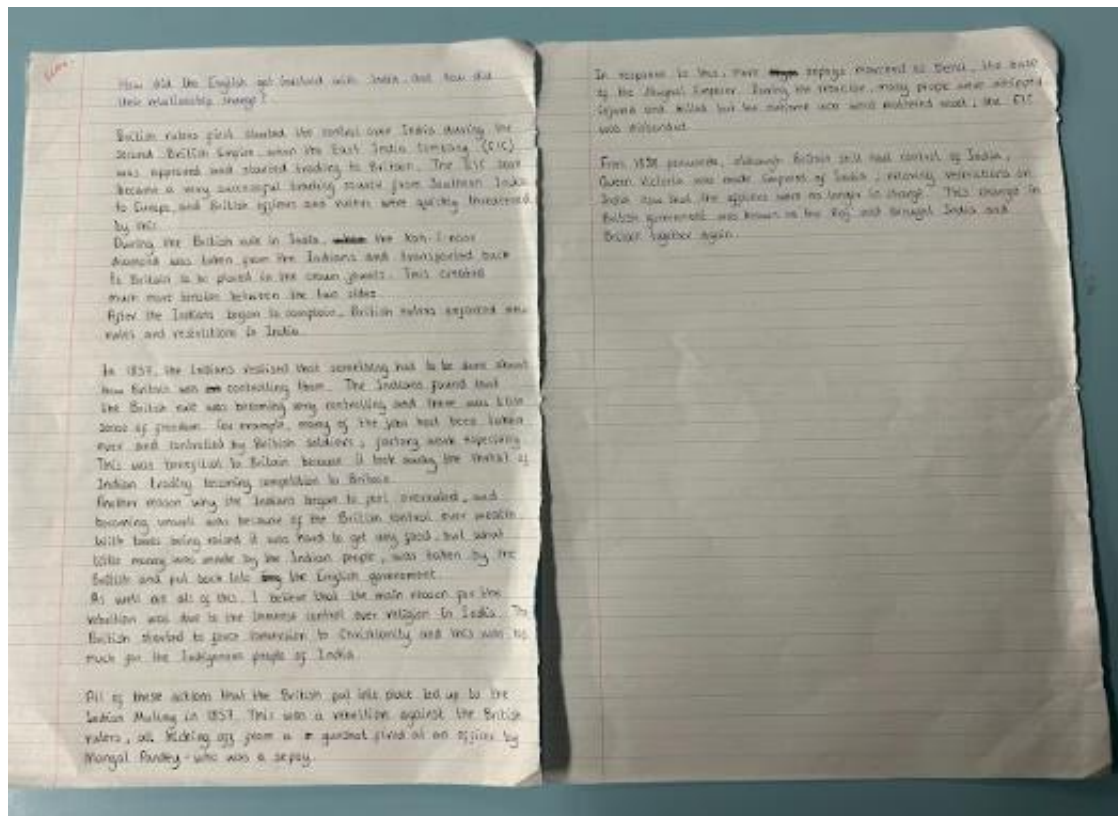 How did the English get involved with India, and how did
their relationship change?
British rulers first started the control over India during the
second British Empire, when the East India Company (EIC)
was approved and started trading to Britain. The EIC soon
became a very successful trading source from Southern India
to Europe, and British officers and rulers were quickly threatened
by this.
During the British rule in India, the Koh-i-noor
diamond was taken from the Indians and transported back
to Britain to be placed in the crown jewels. This created
much more tension between the two sides.
After the Indians began to complain, British rulers enforced new
rules and restrictions in India.
In 1857, the Indians realised that something had to be done about
how Britain was controlling them. The Indians found that
the British rule was becoming very controlling and there was little
sense of freedom. For example, many of the jobs had been taken
over and controlled by British soldiers, factory work especially.
This was beneficial to Britain because it took away the threat of
Indian trading becoming competition to Britain.
Another reason why the Indians began to feel overruled, and
becoming unwell was because of the British control over wealth.
With taxes being raised it was hard to get any food, but what
little money was made by the Indian people, was taken by the
British and put back into the English government.
As well as all of this, I believe that the main reason for the
rebellion was due to the immense control over religion in India. The
British started to force conversion to Christianity and this was too
much for the Indigenous people of India.
All of these actions that the British put into place led up to the
Indian Mutiny in 1857. This was a rebellion against the British
rulers, all kicking off from a gunshot fired at an officer by
Mangal Pandey - who was a sepoy.
In response to this, more sepoys marched to Delhi, the base
of the Mughal Emperor. During the many people were
injured and killed but the outcome was what mattered most, the EIC
was disbanded.
From 1858 onwards, although Britain still had control of India,
Queen Victoria was made Empress of India, relaxing restrictions on
India now that the officers were no longer in charge. This change in
British government was known as the Raj and brought India and
Britain together again.